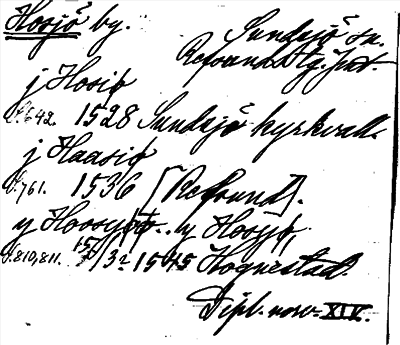 Hosjö by.
Sundsjö sn.
Refsunds tg. Jmt.
j Hosiø
d:o 642. 1528 Sundsjö kyrkvall.
j Haasiø
d:o 761. 1536 [Refsund].
y Hoosyøø. y Hosyø,
d:o 810, 811. 15/3 1545 Hognestad.
Dipl. norv. XIV.